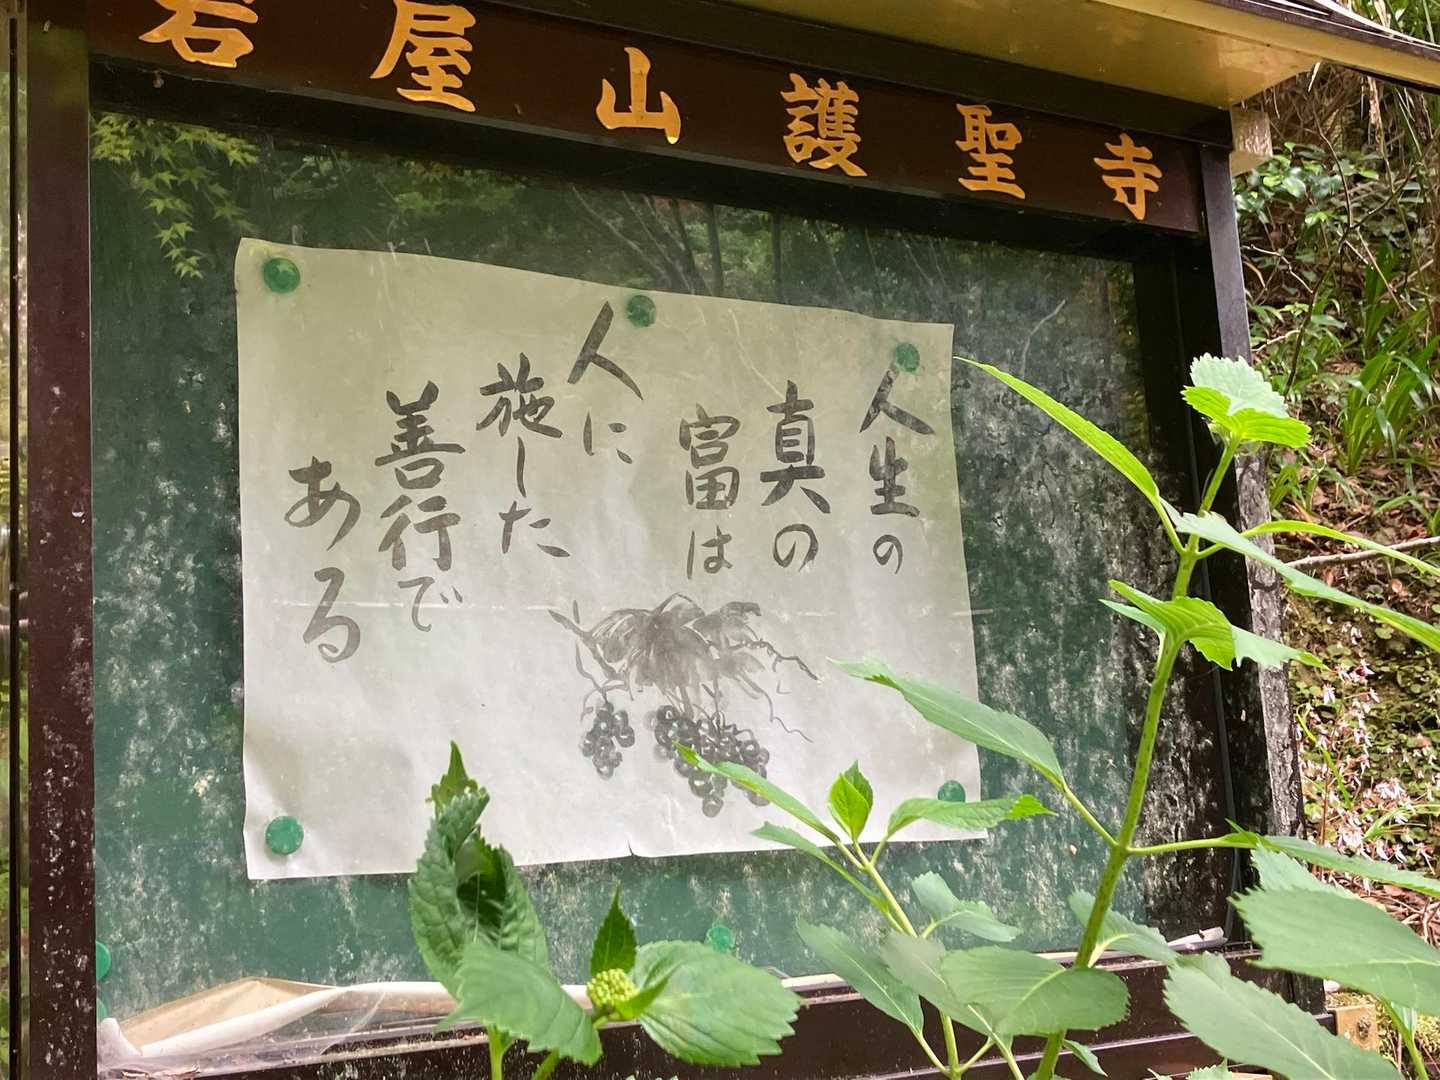 岩屋山護聖寺
人生の
真の
富は
人に
施した
善行で
ある